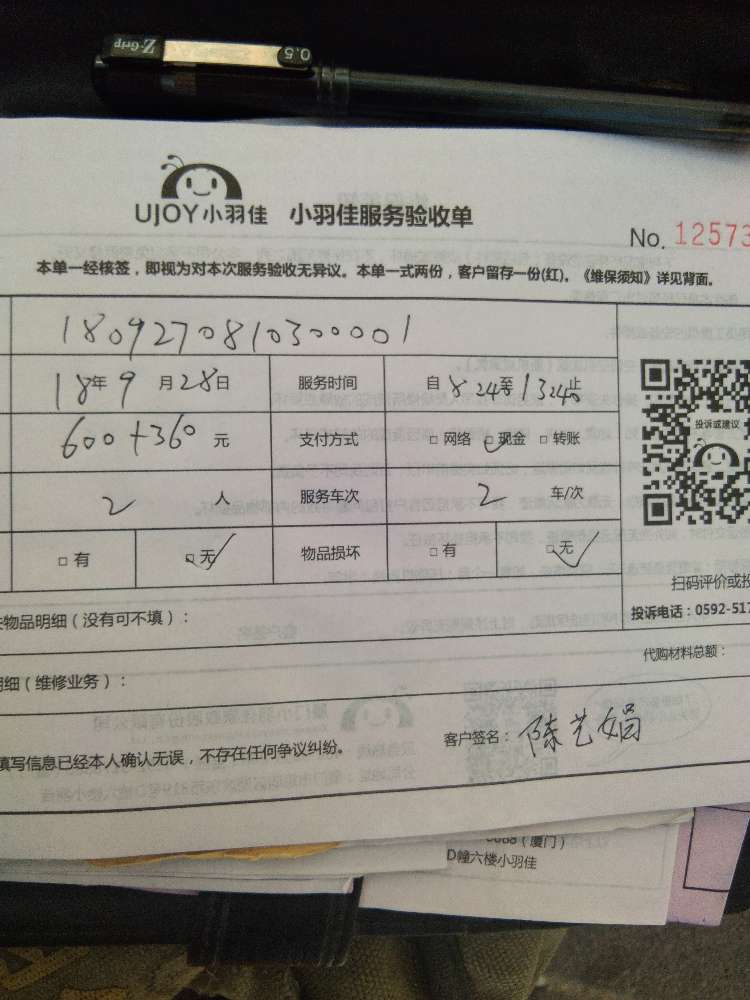 Z-Grip 0.5
UJOY小羽佳 小羽佳服务验收单
No. 12573
本单一经核签，即视为对本次服务验收无异议。本单一式两份，客户留存一份(红)。《维保须知》详见背面。
180927081030001
18年9月28日 服务时间 自824至1324止
600+360元 支付方式 □网络 ☑现金 □转账
投诉或建议
2人 服务车次 2车/次
□有 ☑无 物品损坏 □有 ☑无
扫码评价或投
投诉电话：0592-517
物品明细（没有可不填）：
代购材料总额：
明细（维修业务）：
填写信息已经本人确认无误，不存在任何争议纠纷。
客户签名：陈艺娟
（厦门）
D幢六楼小羽佳